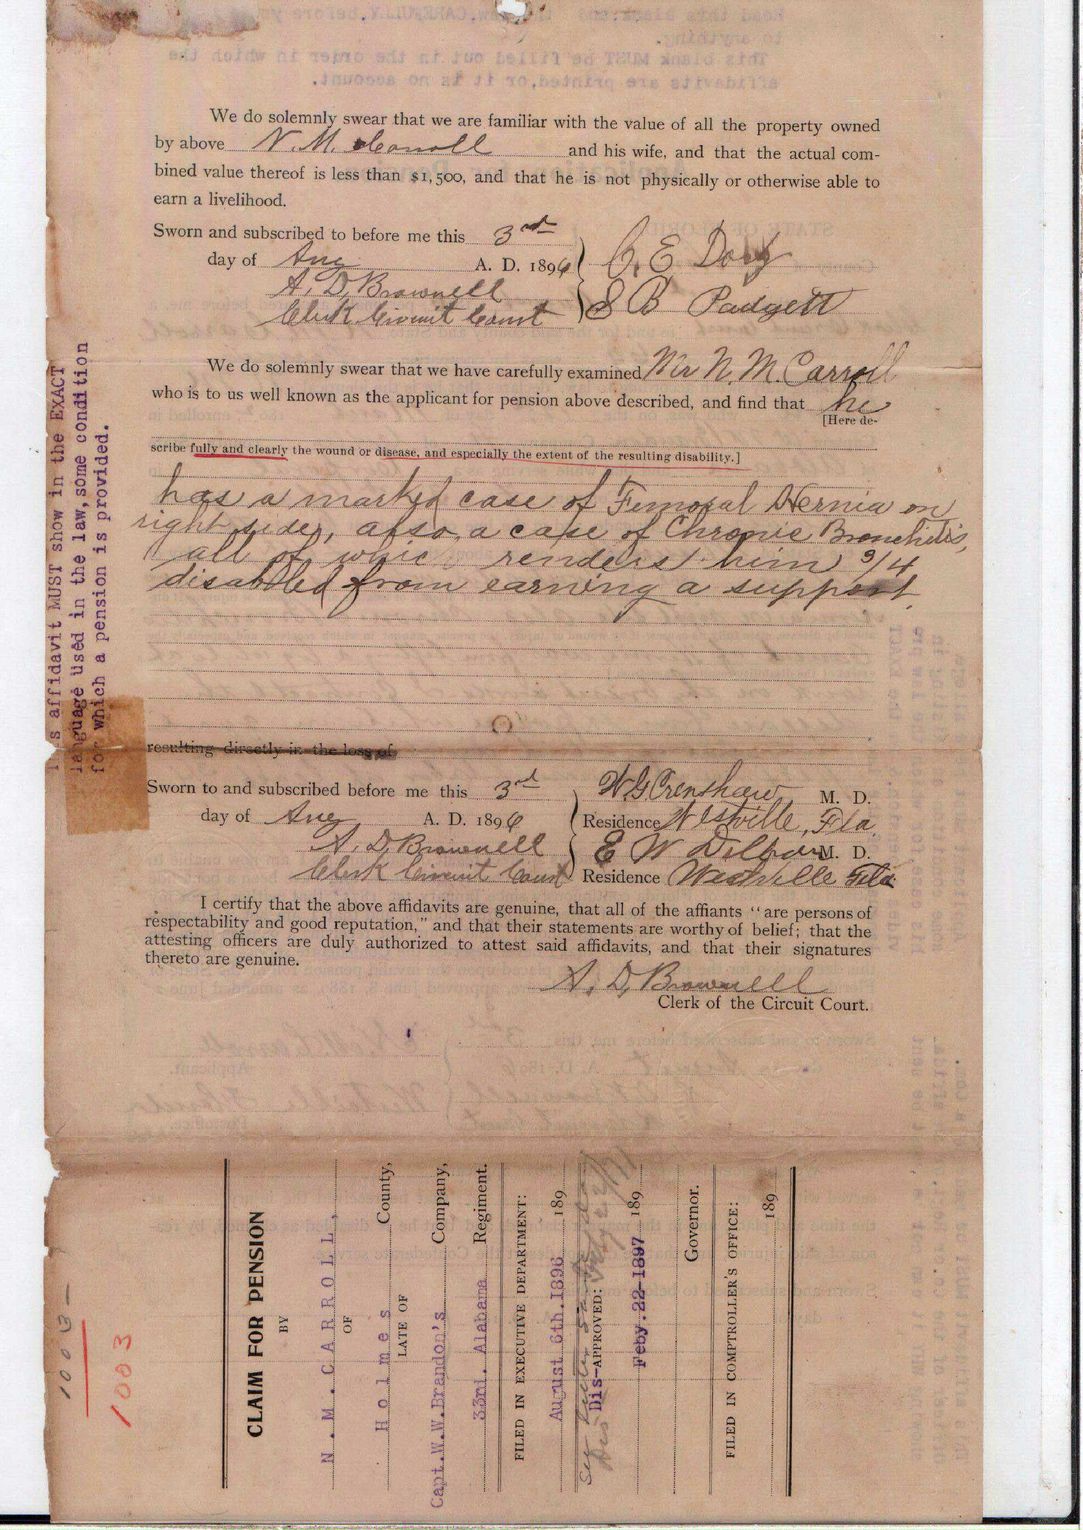 We do solemnly swear that we are familiar with the value of all the property owned
by above N. M. Carroll and his wife, and that the actual com-
bined value thereof is less than $1,500, and that he is not physically or otherwise able to
earn a livelihood.
Sworn and subscribed to before me this 3rd
day of Aug A. D. 1896
A. D. Brownell
Clerk Circuit Court
C. E. Doty
S B Padgett
We do solemnly swear that we have carefully examined Mr N. M. Carroll
who is to us well known as the applicant for pension above described, and find that he
[Here de-
scribe fully and clearly the wound or disease, and especially the extent of the resulting disability.]
has a marked case of Femoral Hernia on
right side, also a case of Chronic Bronchitis,
all of which renders him 3/4
disabled from earning a support
resulting directly in the loss of
Sworn to and subscribed before me this 3rd
day of Aug A. D. 1896
A. D. Brownell
Clerk Circuit Court
W G Crenshaw, M. D.
Residence Westville, Fla
E W M. D.
Residence Westville Fla
I certify that the above affidavits are genuine, that all of the affiants "are persons of
respectability and good reputation," and that their statements are worthy of belief; that the
attesting officers are duly authorized to attest said affidavits, and that their signatures
thereto are genuine.
A. D. Brownell
Clerk of the Circuit Court.
affidavit MUST show in the EXACT
language used in the law, some condition
for which a pension is provided.
1003
1003
CLAIM FOR PENSION
BY
N. M. CARROLL,
OF
Holmes County,
LATE OF
Capt. W. W. Brandon's Company,
33rd. Alabama Regiment.
FILED IN EXECUTIVE DEPARTMENT:
August 6th. 1896 189
Dis-APPROVED:
Feby. 22-1897 189
Governor.
FILED IN COMPTROLLER'S OFFICE:
189